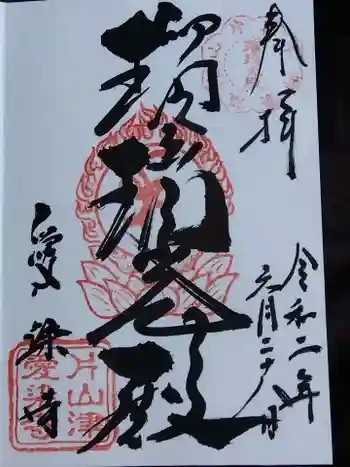 奉拝
令和二年
六月二十八日
瑠璃光殿
愛染寺
片山津
愛染寺